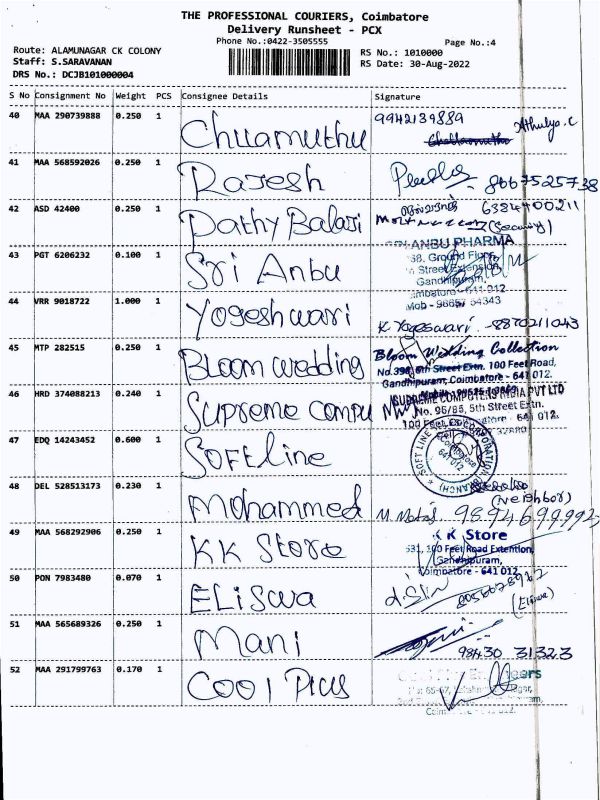 THE PROFESSIONAL COURIERS, Coimbatore
Delivery Runsheet - PCX
Phone No.:0422-3505555 Page No.:4
Route: ALAMUNAGAR CK COLONY RS No.: 1010000
Staff: S.SARAVANAN RS Date: 30-Aug-2022
DRS No.: DCJB101000004
S No Consignment No Weight PCS Consignee Details Signature
40 MAA 290739888 0.250 1 Chllamuthu 9942139889 Athulya.C
41 MAA 568592026 0.250 1 Rajesh 8667525738
42 ASD 42400 0.250 1 Pathy Balaji 6384400211
(Security)
43 PGT 6206232 0.100 1 Sri Anbu ANBU PHARMA
Ground Floor,
Street Extension,
Gandhipuram,
44 VRR 9018722 1.000 1 Yogeshwari K. Yogeswari - 8870211043
45 MTP 282515 0.250 1 Bloom wedding Bloom Wedding Collection
No.398, 6th Street Extn. 100 Feet Road,
Gandhipuram, Coimbatore - 641 012.
46 HRD 374088213 0.240 1 Supreme Compu SUPREME COMPUTERS INDIA PVT LTD
No. 96/85, 5th Street Extn.
100 Feet
47 EDQ 14243452 0.600 1 SOFTline SOFT LINE CORPORATION
48 DEL 528513173 0.230 1 Mohammed (Neighbor)
49 MAA 568292906 0.250 1 KK Store K K Store
531, 100 Feet Road Extention,
Gandhipuram,
Coimbatore - 641 012
50 PON 7983480 0.070 1 ELiswa
51 MAA 565689326 0.250 1 Mani 98430 31323
52 MAA 291799763 0.170 1 Cool Plus